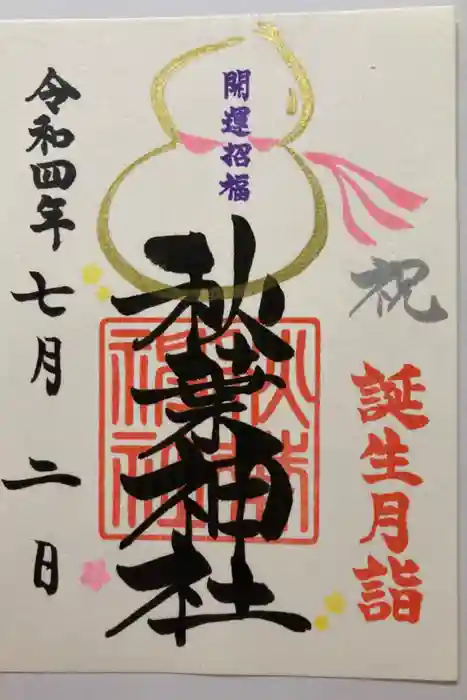 祝
誕生月詣
開運招福
秋葉神社
令和四年七月二日